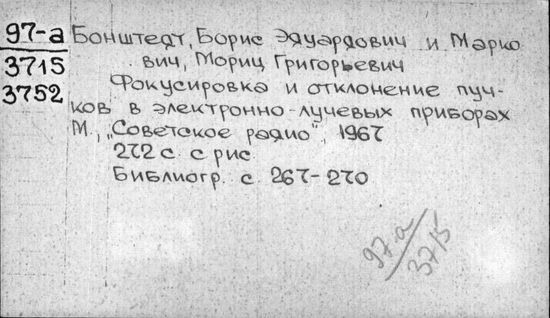 97-а Бонштедт, Борис Эдуардович и Марко
3715 вич, Мориц Григорьевич
3752 Фокусировка и отклонение пуч-
ков в электронно-лучевых приборах
М., „Советское радио", 1967
272 с. с рис.
Библиогр. с. 267-270
97-а
3715